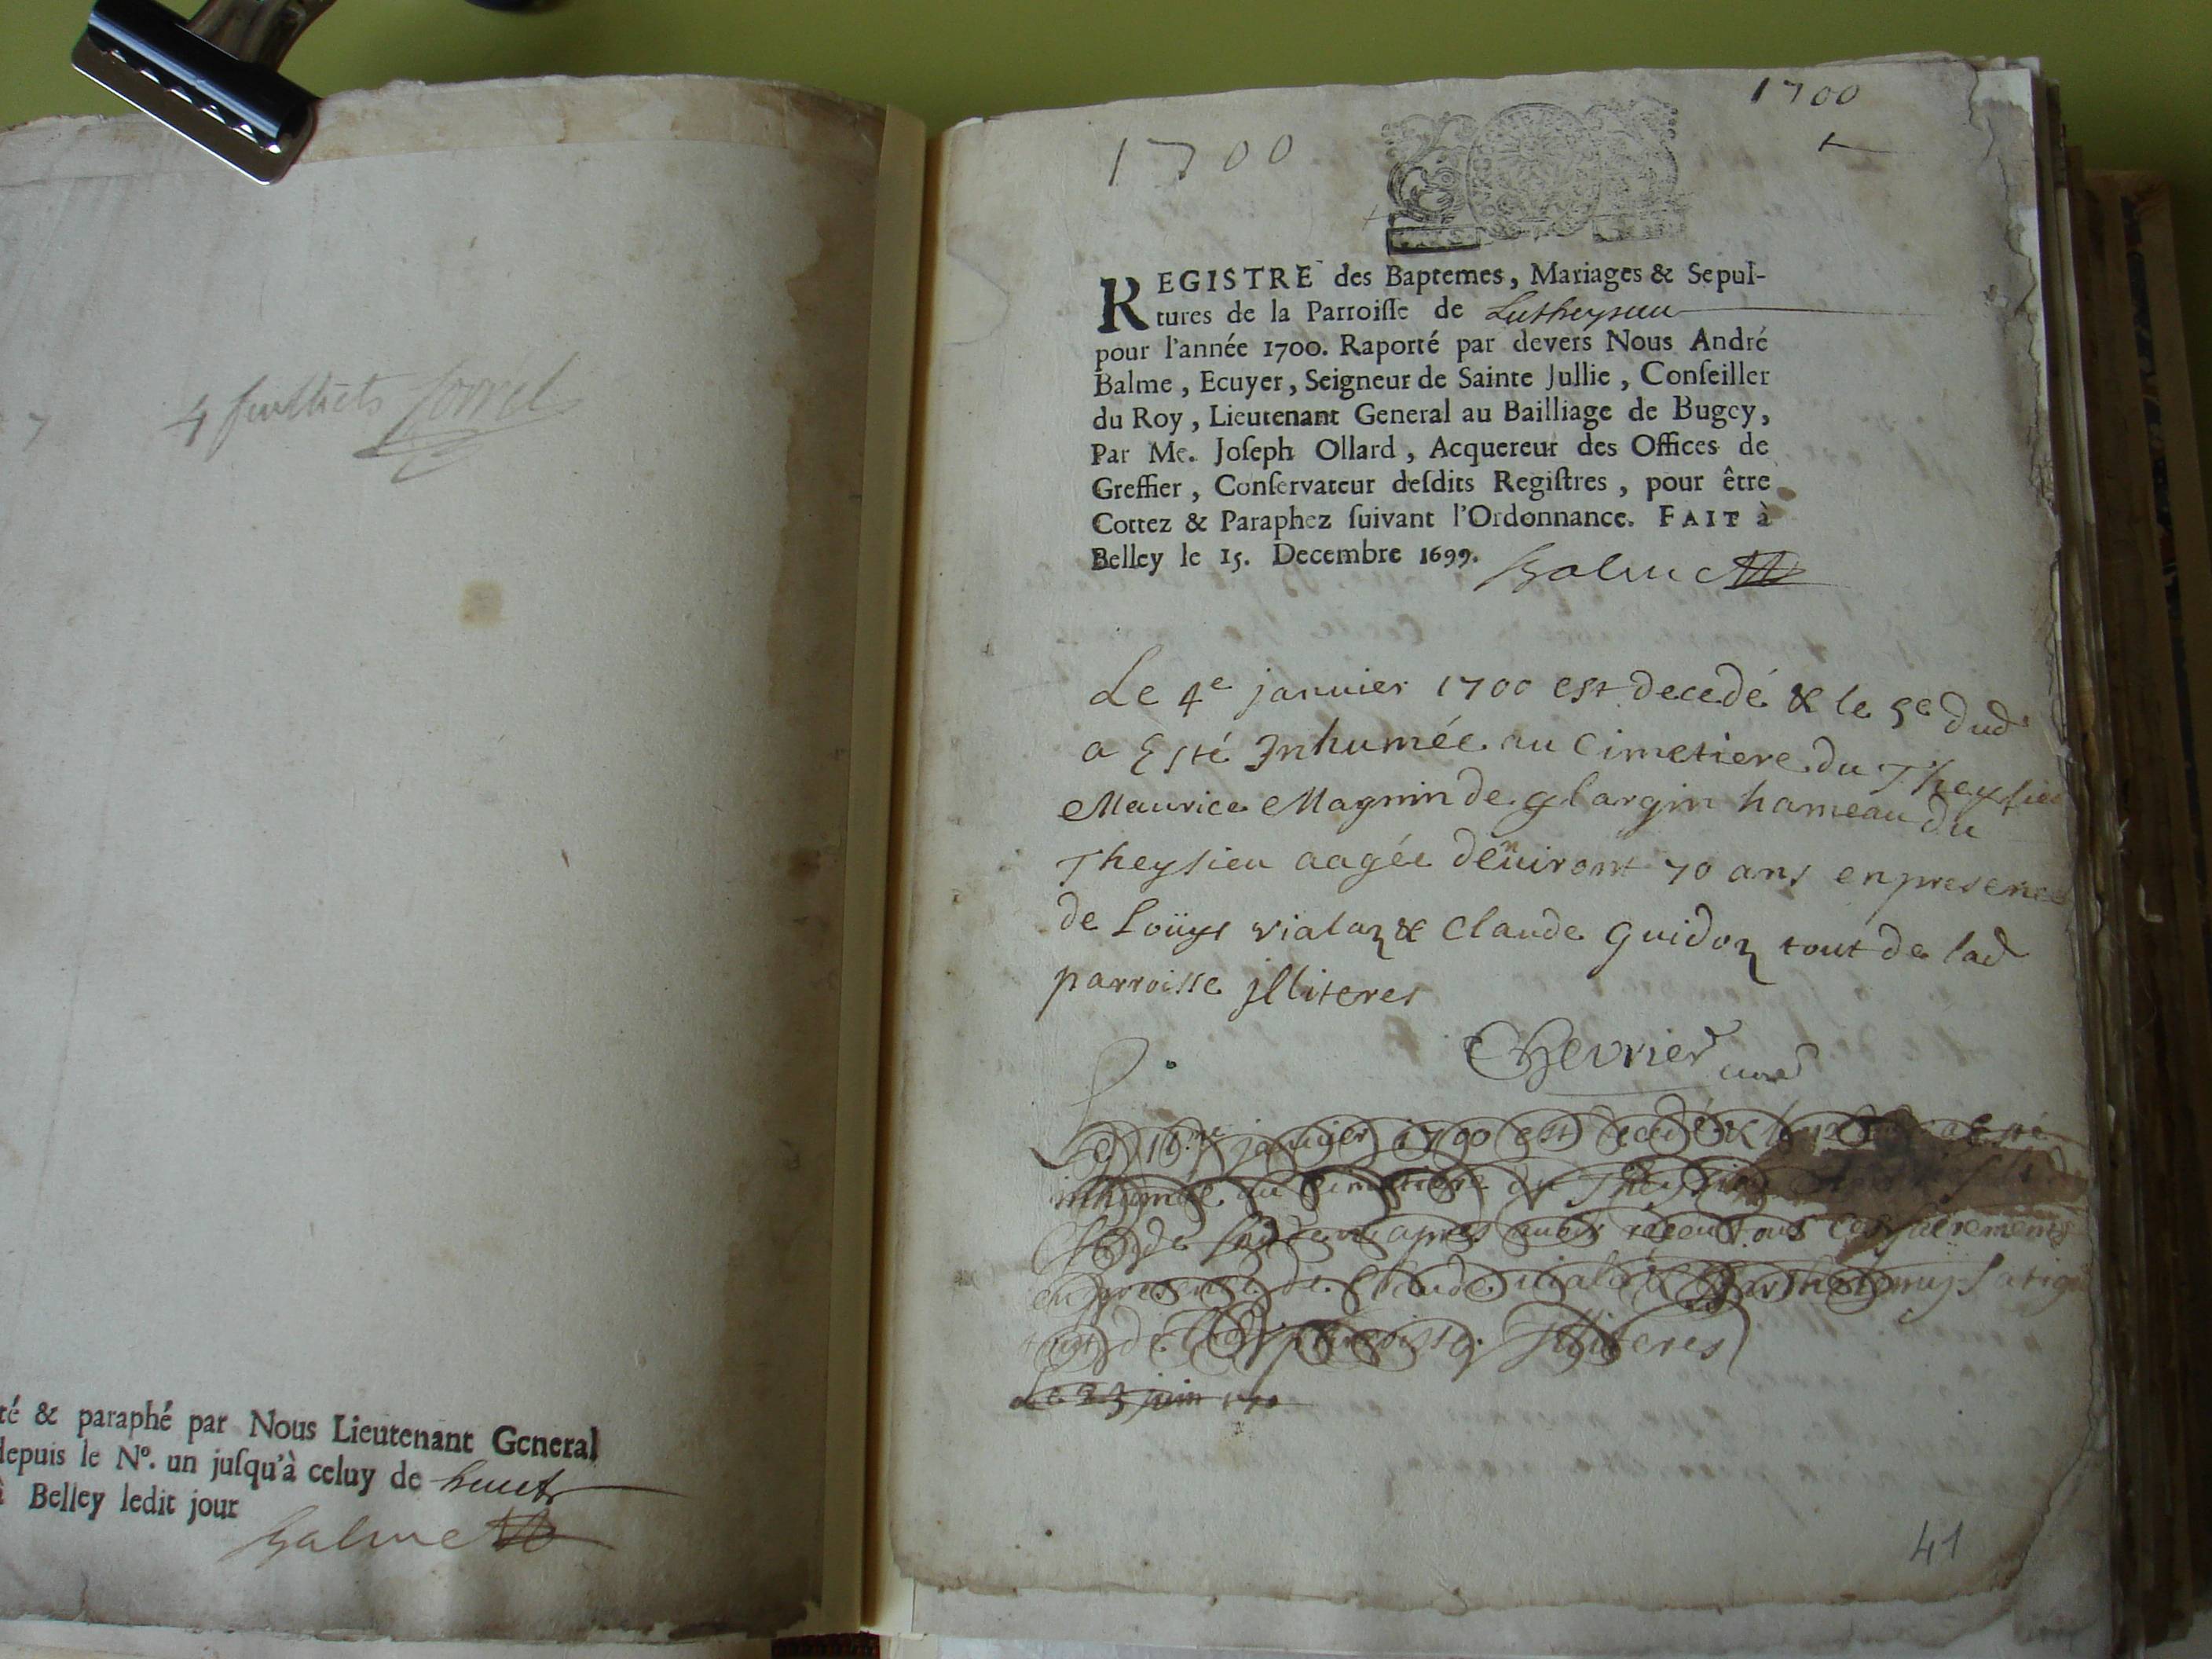 4 feulliets
té & paraphé par Nous Lieutenant General
depuis le N°. un juſqu'à celuy de huict
à Belley ledit jour
Balme
1700
1700
REGISTRE des Baptemes, Mariages & Sepul-
tures de la Parroiſſe de Lutheysieu
pour l'année 1700. Raporté par devers Nous André
Balme, Ecuyer, Seigneur de Sainte Jullie, Conſeiller
du Roy, Lieutenant General au Bailliage de Bugey,
Par Me. Joſeph Ollard, Acquereur des Offices de
Greffier, Conſervateur deſdits Regiſtres, pour être
Cottez & Paraphez ſuivant l'Ordonnance. FAIT à
Belley le 15. Decembre 1699. Balme
Le 4e janvier 1700 est decedé & le 5e dud
a Esté Inhumée au Cimetiere du Theysieu
Maurice Magnin de glargin hameau du
Theysieu aagée denuiront 70 ans en presence
de Loüys vialaz & Claude Guidoz tout de lad
parroisse jlliteres
Chevrier curé
Le 11me janvier 1700 est decedé &
inhumée au Cimetiere du Theysieu
de apres auoir receu tous les sacrements
en presence de Claude viala & Barthelemy
tout de lad parroisse Jlliteres
Le 23 juin 170
41